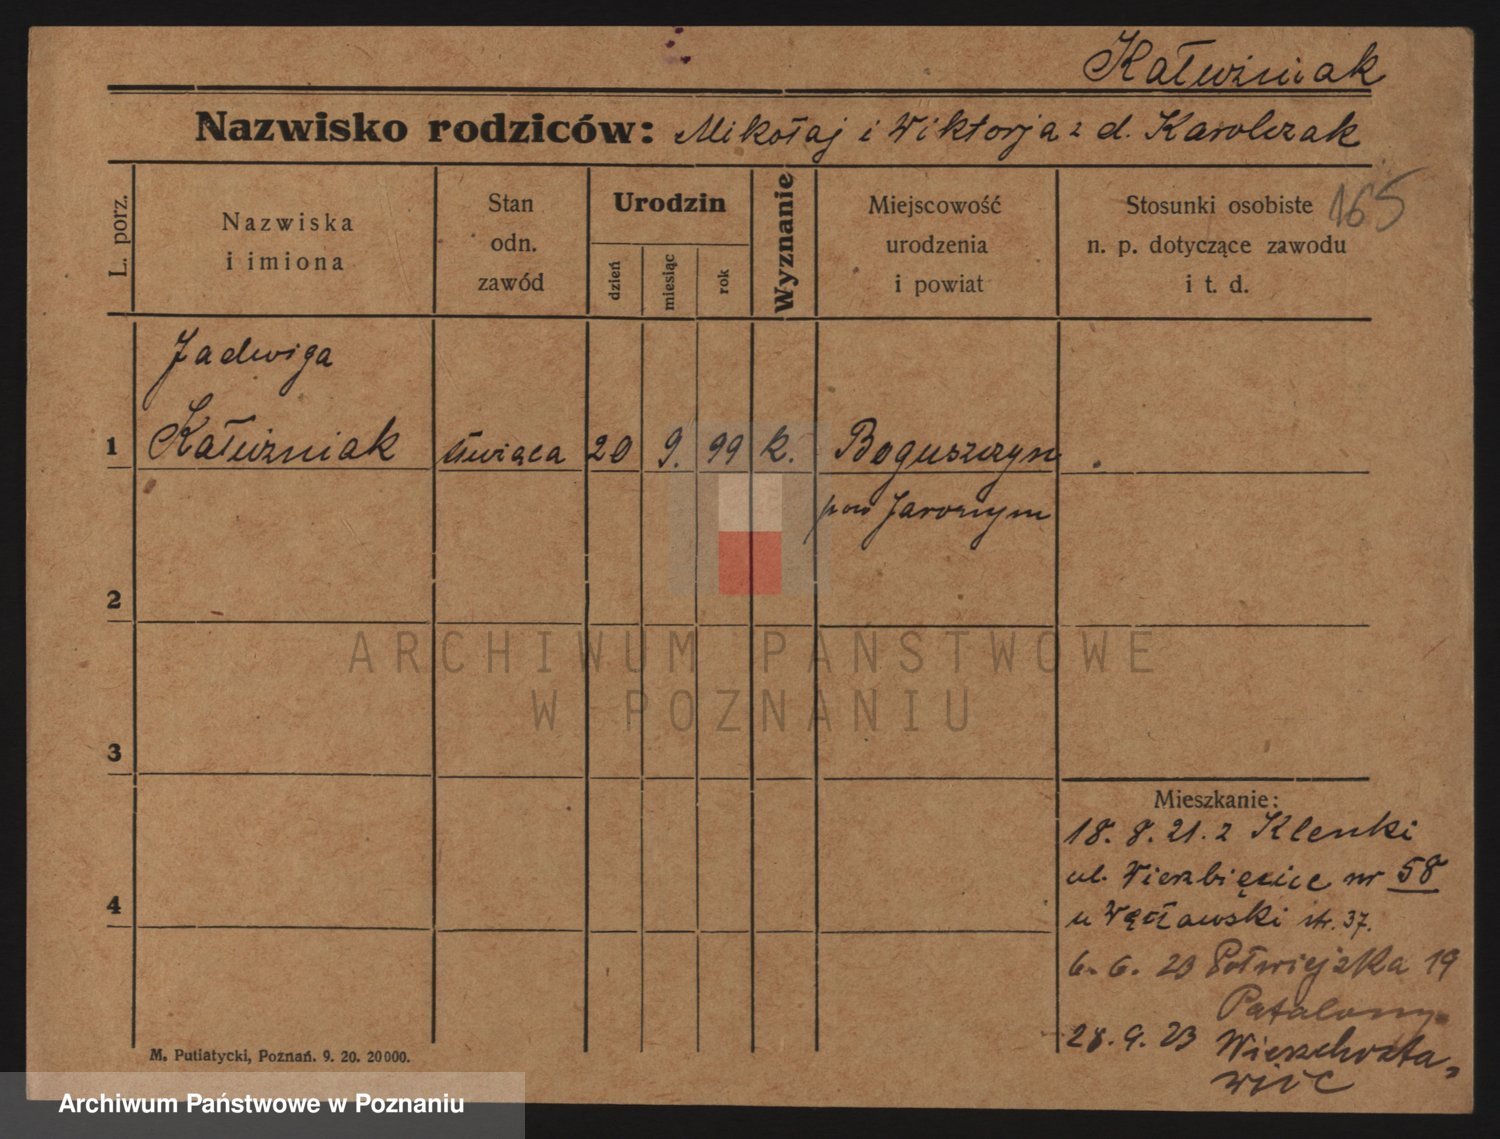 Kałużniak
Nazwisko rodziców: Mikołaj i Wiktorja z d. Karolczak
L. porz.
Nazwiska
i imiona
Stan
odn.
zawód
Urodzin
dzień
miesiąc
rok
Wyznanie
Miejscowość
urodzenia
i powiat
Stosunki osobiste
n. p. dotyczące zawodu
i t. d.
165
Jadwiga
1 Kałużniak 20 9. 99 k. Boguszyn
pow Jaroczyn
2
3
4
ARCHIWUM PAŃSTWOWE
W POZNANIU
Mieszkanie:
18. 8. 21. z Klenki
ul. Wierzbięcice nr 58
u Węcławski str. 37.
6. 6. 23 Półwiejska 19
28. 9. 23 Wierzchosła-
wice
M. Putiatycki, Poznań. 9. 20. 20000.
Archiwum Państwowe w Poznaniu